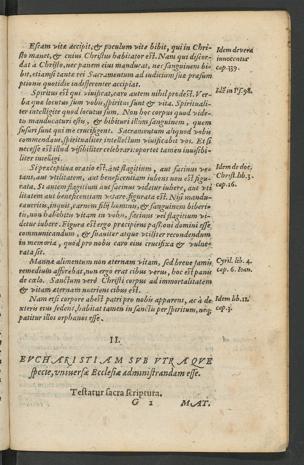 Escam vitæ accipit, & poculum vitæ bibit, qui in Chri-
sto manet, & cuius Christus habitator est. Nam qui discor-
dat à Christo, nec panem eius manducat, nec sanguinem bi-
bit, etiamsi tantæ rei Sacramentum ad iudicium suæ præsum
ptionis quotidie indifferenter accipiat.
Idem de vera
innocentia
cap. 339.
Spiritus est qui viuificat, caro autem nihil prodest. Ver-
ba quæ locutus sum vobis, spiritus sunt & vita. Spirituali-
ter intelligite quod locutus sum. Non hoc corpus quod vide-
tis manducaturi estis, & bibituri illum sanguinem, quem
fusuri sunt qui me crucifigent. Sacramentum aliquod vobis
commendaui, spiritaliter intellectum viuificabit vos. Et si
necesse est illud visibiliter celebrari: oportet tamen inuisibi-
liter intelligi.
Id in Ps. 98.
Si præceptiua oratio est, aut flagitium, aut facinus ve-
tans, aut vtilitatem, aut beneficentiam iubens non est figu-
rata. Si autem flagitium aut facinus videtur iubere, aut vti
litatem aut beneficentiam vetare, figurata est. Nisi mandu-
caueritis, inquit, carnem filij hominis, & sanguinem biberi-
tis, non habebitis vitam in vobis, facinus vel flagitium vi-
detur iubere. Figura est ergo præcipiens passioni domini esse
communicandum, & suauiter atque vtiliter recondendum
in memoria, quod pro nobis caro eius crucifixa & vulne-
rata sit.
Idem de doc.
Christ. lib. 3.
cap. 16.
Manna alimentum non æternam vitam, sed breue famis
remedium afferebat, non ergo erat cibus verus, hoc est panis
de cælo. Sanctum verò Christi corpus ad immortalitatem
& vitam æternam nutriens cibus est.
Cyril. lib. 4.
cap. 6. Ioan.
Nam etsi corpore abest patri pro nobis apparens, ac à de
xteris eius sedens, habitat tamen in sanctis per spiritum, neq;
patitur illos orphanos esse.
Idem lib. 12.
cap. 3.
II.
EVCHARISTIAM SVB VTRAQVE
specie, vniuersæ Ecclesiæ administrandam esse.
Testatur sacra scriptura.
G 2
MAT.